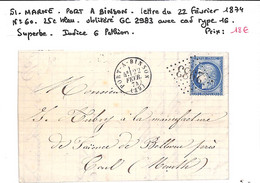 51. MARNE. PORT A BINSON. lettre du 22 Février 1874
N° 60. 25c bleu. oblitéré GC 2983 avec cad type 16.
Superbe. Indice 6 Pothion. Prix: 18€
PORT-A-BINSON
22
FEVR
(49)
à la manufacture
de Faïence de Bellevue près
Toul (Meurthe)